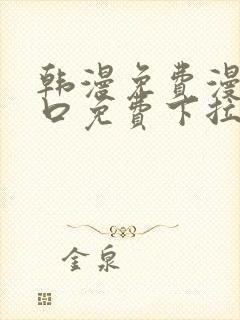 韩漫免费漫
口免费下拉
金泉